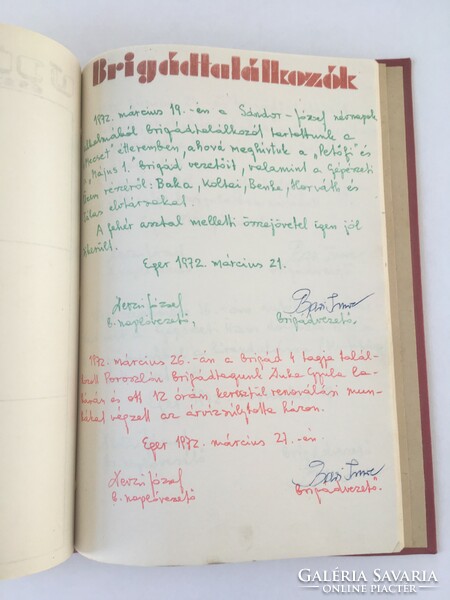 Brigádtalálkozók
1972. március 19.-én a Sándor-József névnapok
alkalmából brigádtalálkozót tartottunk a
étteremben, ahová meghívtuk a „Petőfi" és
„Május 1." Brigád vezetőit, valamint a Gépészeti
Üzem részéről: Baka, Koltai, Benke, Horváth és
elvtársakat.
A fehér asztal melletti összejövetel igen jól
sikerült.
Eger 1972. március 21.
József
B. naplóvezető, Brigádvezető.
1972. március 26.-án a Brigád 4 tagja talál-
kozott Poroszlón Brigádtagunk Duka Gyula la-
kásán és ott 12 órán keresztül renoválási mun-
kákat végzett az árvízsújtotta házon.
Eger 1972. március 27.-én
József
B. naplóvezető Brigádvezető.
GALÉRIA SAVARIA
ONLINE PIACTÉR